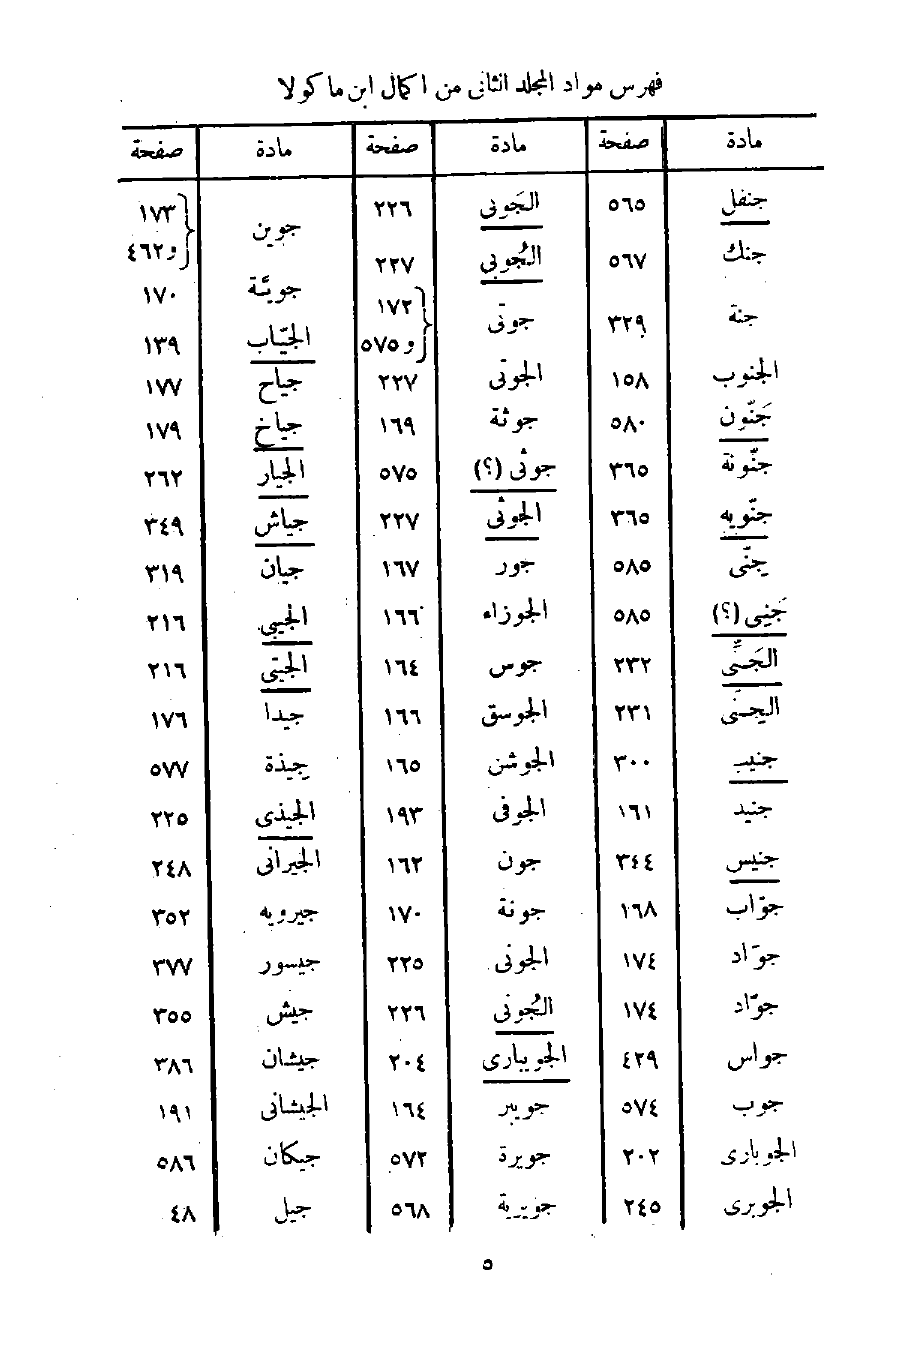 فهرس مواد المجلد الثانى من اكمال ابن ماكولا
مادة صفحة مادة صفحة مادة صفحة
جنفل ٥٦٥ الجَوبى ٢٢٦ جوين ١٧٣ و٤٦٢
جنك ٥٦٧ الجُوبى ٢٢٧ جويّة ١٧٠
جنة ٣٢٩ جوتى ١٧٢ و٥٧٥ الجيّاب ١٣٩
الجنوب ١٥٨ الجوتى ٢٢٧ جياح ١٧٧
جَنّون ٥٨٠ جوثة ١٦٩ جياخ ١٧٩
جنّونة ٣٦٥ جوثى (؟) ٥٧٥ الجيار ٢٦٢
جنّويه ٣٦٥ الجوثى ٢٢٧ جياش ٣٤٩
جِنّى ٥٨٥ جور ١٦٧ جيان ٣١٩
جَنِيى (؟) ٥٨٥ الجوزاء ١٦٦ الجيبى ٢١٦
الجَنّى ٢٣٢ جوس ١٦٤ الجيتى ٢١٦
الجِنّى ٢٣١ الجوسق ١٦٦ جيدا ١٧٦
جنيب ٣٠٠ الجوشن ١٦٥ جيذة ٥٧٧
جنيد ١٦١ الجوفى ١٩٣ الجيذى ٢٢٥
جنيس ٣٤٤ جون ١٦٢ الجيرانى ٢٤٨
جوّاب ١٦٨ جونة ١٧٠ جيرويه ٣٥٢
جوّاد ١٧٤ الجونى ٢٢٥ جيسور ٣٧٧
جوّاد ١٧٤ الجُونى ٢٢٦ جيش ٣٥٥
جواس ٤٢٩ الجويبارى ٢٠٤ جيشان ٣٨٦
جوب ٥٧٤ جويبر ١٦٤ الجيشانى ١٩١
الجوبارى ٢٠٢ جويرة ٥٧٢ جيكان ٥٨٦
الجوبرى ٢٤٥ جويرية ٥٦٨ جيل ٤٨
٥